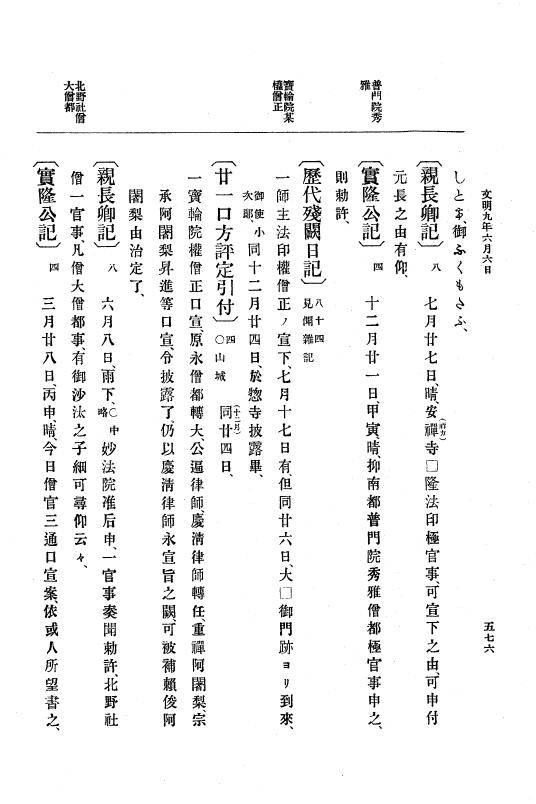 文明九年六月六日
五七六
しとお、御ふくもさふ、
〔親長卿記〕八 七月廿七日、晴、安禪寺□隆法印極官事、可宣下之由、可申付
元長之由有仰、
普門院秀
雅
〔實隆公記〕四 十二月廿一日、甲寅、晴、抑南都普門院秀雅僧都極官事申之、
則勅許、
〔歷代殘闕日記〕八十四 見聞雜記
寶輪院某
權僧正
一師主法印權僧正ノ宣下、七月十七日有、但同廿六日、大□御門跡ヨリ到來、
御使小
次郎、同十二月廿四日、於惣寺披露畢、
〔廿一口方評定引付〕四 ○山城 同(十二月)廿四日、
一寶輪院權僧正口宣、原永僧都轉大、公遍律師、慶淸律師轉任、重禪阿闍梨、宗
承阿闍梨昇進等口宣、令披露了、仍以慶淸律師永宣旨之闕、可被補賴俊阿
闍梨由治定了、
〔親長卿記〕八 六月八日、雨下、○中略 妙法院准后申、一官事奏聞勅許、北野社
北野社僧
大僧都
僧一官事、凡僧大僧都事、有御沙汰之子細可尋仰云々、
〔實隆公記〕四 三月廿八日、丙申、晴、今日僧官三通口宣案、依或人所望書之、